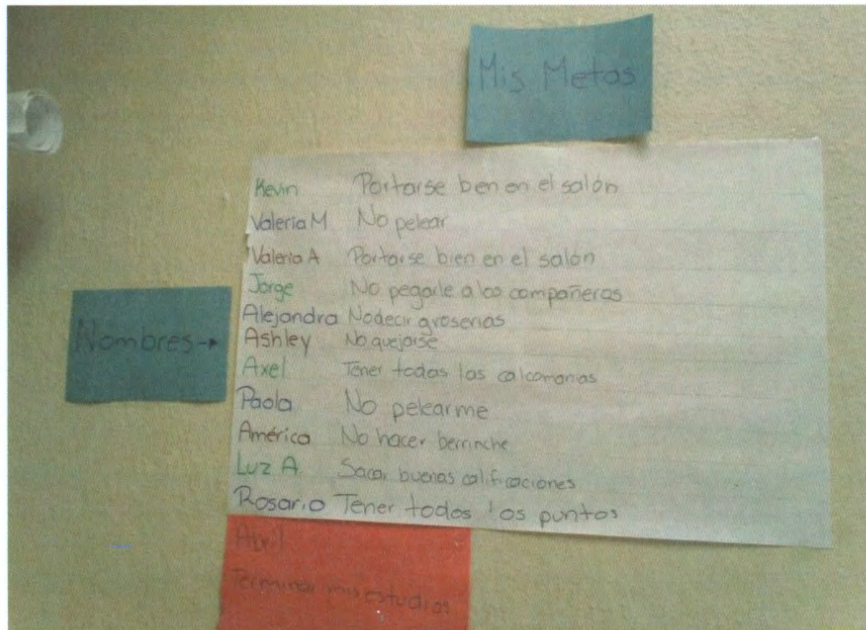 Mis Metas
Kevin Portarse bien en el salón
Valeria M No pelear
Valeria A Portarse bien en el salón
Jorge No pegarle a los compañeros
Nombres→
Alejandra No decir groserias
Ashley No quejarse
Axel Tener todas las calcomanias
Paola No pelearme
América No hacer berrinche
Luz A. Sacar buenas calificaciones
Rosario Tener todos los puntos
Abril
Terminar mis estudios